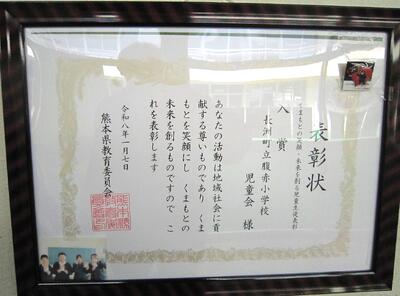 表彰状
くまもとの笑顔・未来を創る児童生徒表彰
入賞
長洲町立腹赤小学校
児童会 様
あなたの活動は地域社会に貢
献する尊いものであり くま
もとを笑顔にし くまもとの
未来を創るものですので こ
れを表彰します
令和八年一月七日
熊本県教育委員会